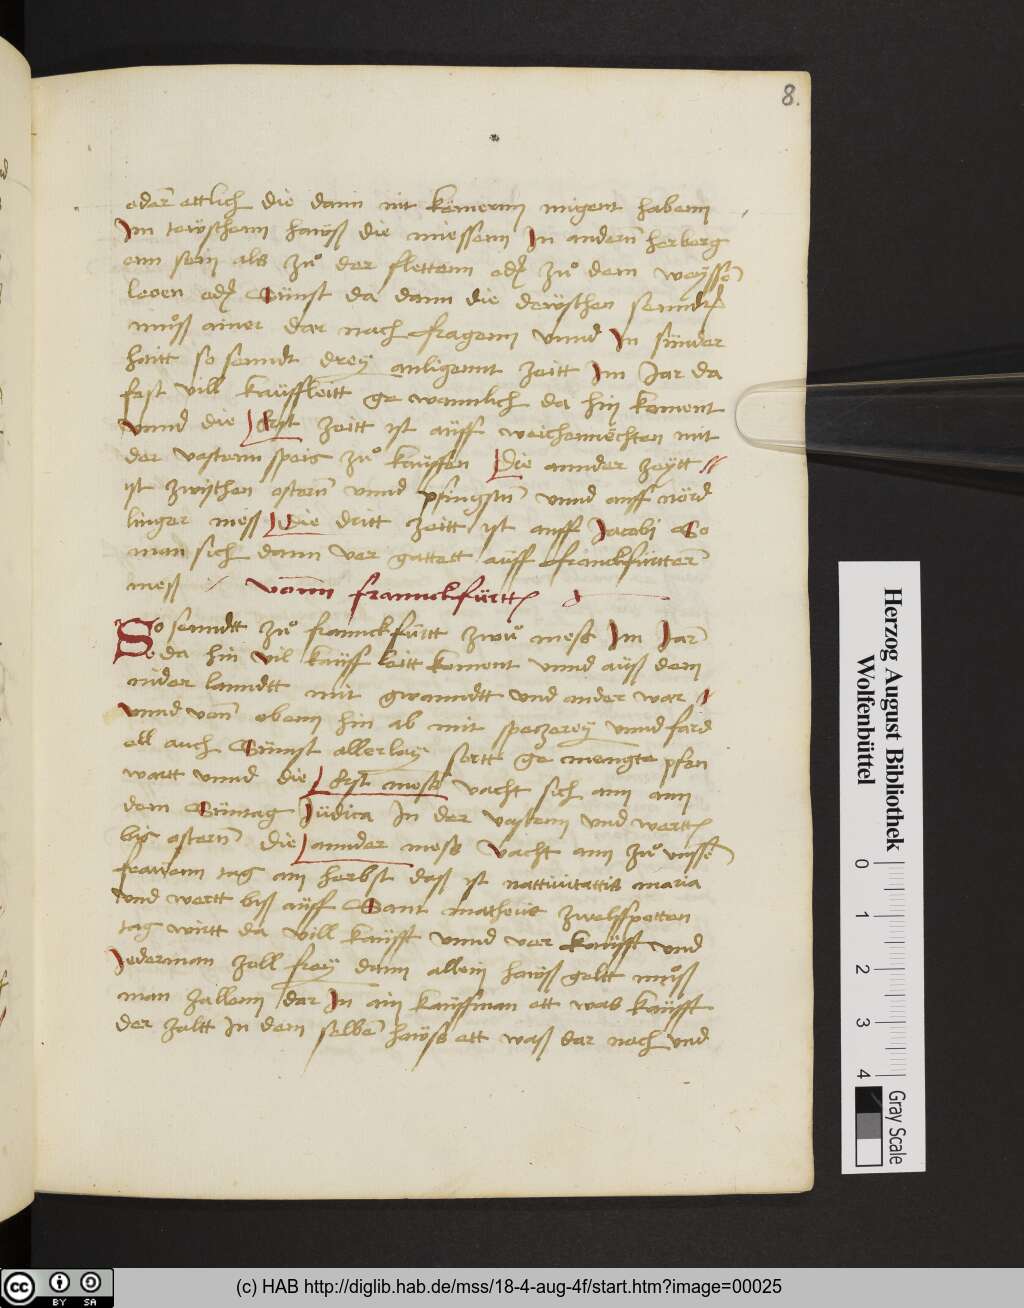 8.
oder ettlich die dann nit kömenn migent habenn
Im tewschenn hawß die miessenn In andern herberg
enn sein als zuͦ der flettenn oder zuͦ dem weyssen
leoen oder Sünst da dann die dewschen senndt
muͦß ainer dar nach fragenn vnnd In sünder
haitt so senndt drey anligennt zeitt Im Jar da
fast vill kaüffleitt ge wannlich da hin koment
vnnd die Erst zeitt ist aüff weichennechten mit
der vastenn speis zuͦ kauffen Die annder zeytt
ist zwischen ostern vnnd pfingsten vnnd auff nörd
linger meß Die dritt zeitt ist auff Jacobi So
man sich dann ver gattett aüff franckfürtter
meß
vonn frannckfürtt
So senndtt zuͦ franckfürtt zwuͦ mess Im Jar
So da hin vil kauff leitt koment vnnd auß dem
nider lanndtt mit gwanndtt vnd ander war
vnnd von obenn hin ab mit speczerey vnnd fard
ell auch Sünst allerlay sortt ge mengte pfen
wartt vnnd die Erst mess vacht sich ann ann
dem Sünttag Judica In der vastenn vnd wertt
bis ostern die annder mess vacht ann zuͦ vnsser
frawenn tag am herbst daß ist nattiuitattis maria
vnd wertt biß aüff Sant matheus zwelffpotten
tag wirtt da vill kaüfft vnnd ver kaüfft vnd
Jederman zoll frey dann allein hawß geltt muͦß
man zallenn dar In ain kauffman ett was kaüfft
der zaltt In dem selben hawss ett waß dar noch vnd
Herzog August Bibliothek
Wolfenbüttel
0 1 2 3 4
Gray Scale
cc BY SA
(c) HAB http://diglib.hab.de/mss/18-4-aug-4f/start.htm?image=00025